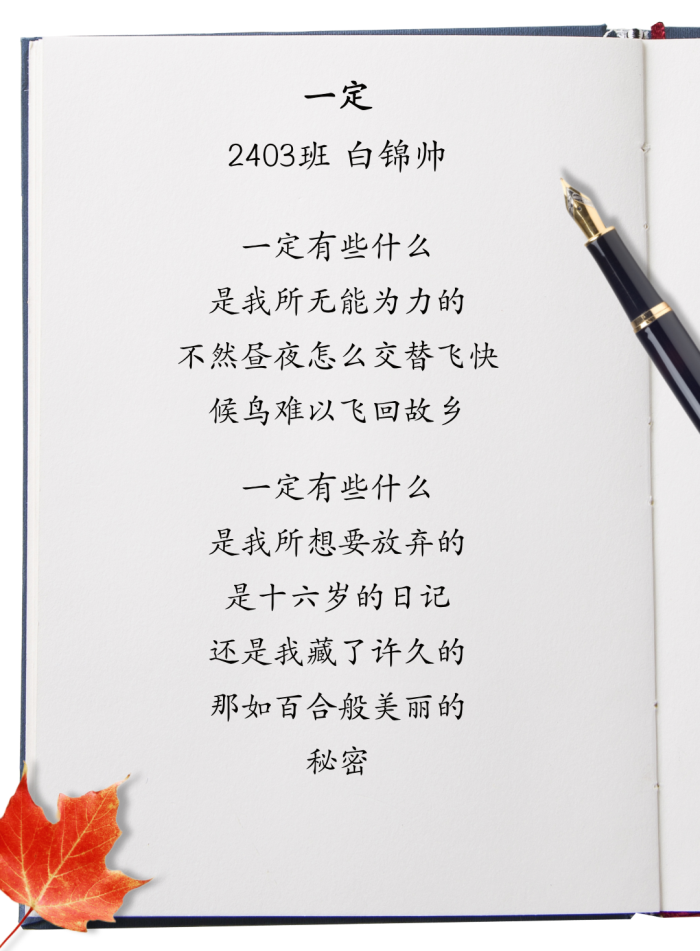 一定
2403班 白锦帅
一定有些什么
是我所无能为力的
不然昼夜怎么交替飞快
候鸟难以飞回故乡
一定有些什么
是我所想要放弃的
是十六岁的日记
还是我藏了许久的
那如百合般美丽的
秘密